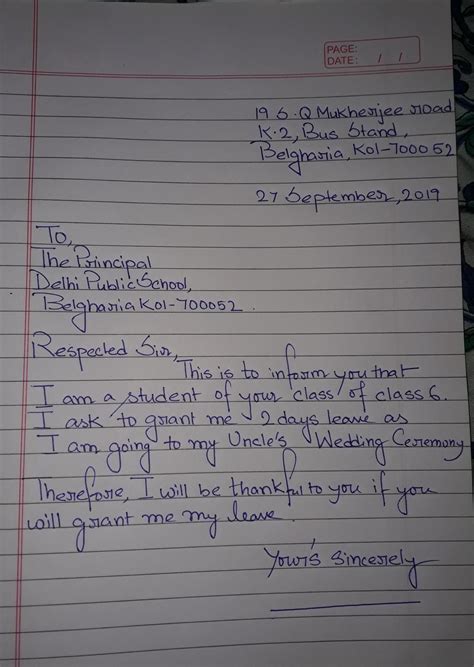 PAGE:
DATE: / /
19 S.Q Mukherjee road
K-2, Bus Stand,
Belgharia, Kol-700052
27 September, 2019
To,
The Principal
Delhi Public School,
Belgharia Kol-700052.
Respected Sir,
This is to inform you that
I am a student of your class, of class 6.
I ask to grant me 2 days leave as
I am going to my Uncle's Wedding Ceremony
Therefore, I will be thankful to you if you
will grant me my leave.
Your's sincerely